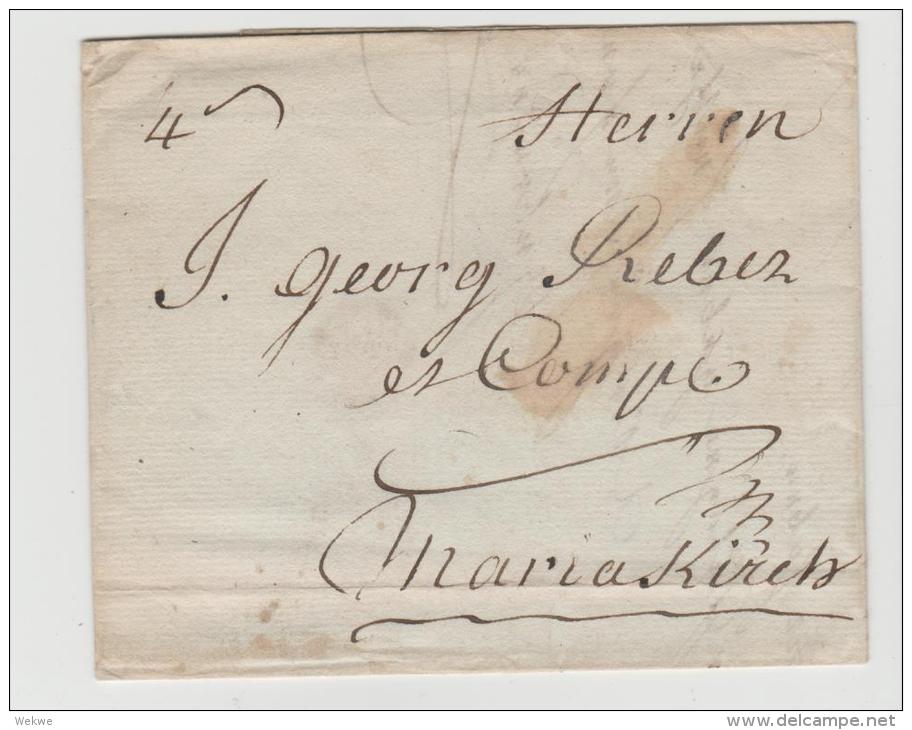 4 Herren
J. georg Reber
et Comp.
Mariakirch
Wekwe
delcampe.net